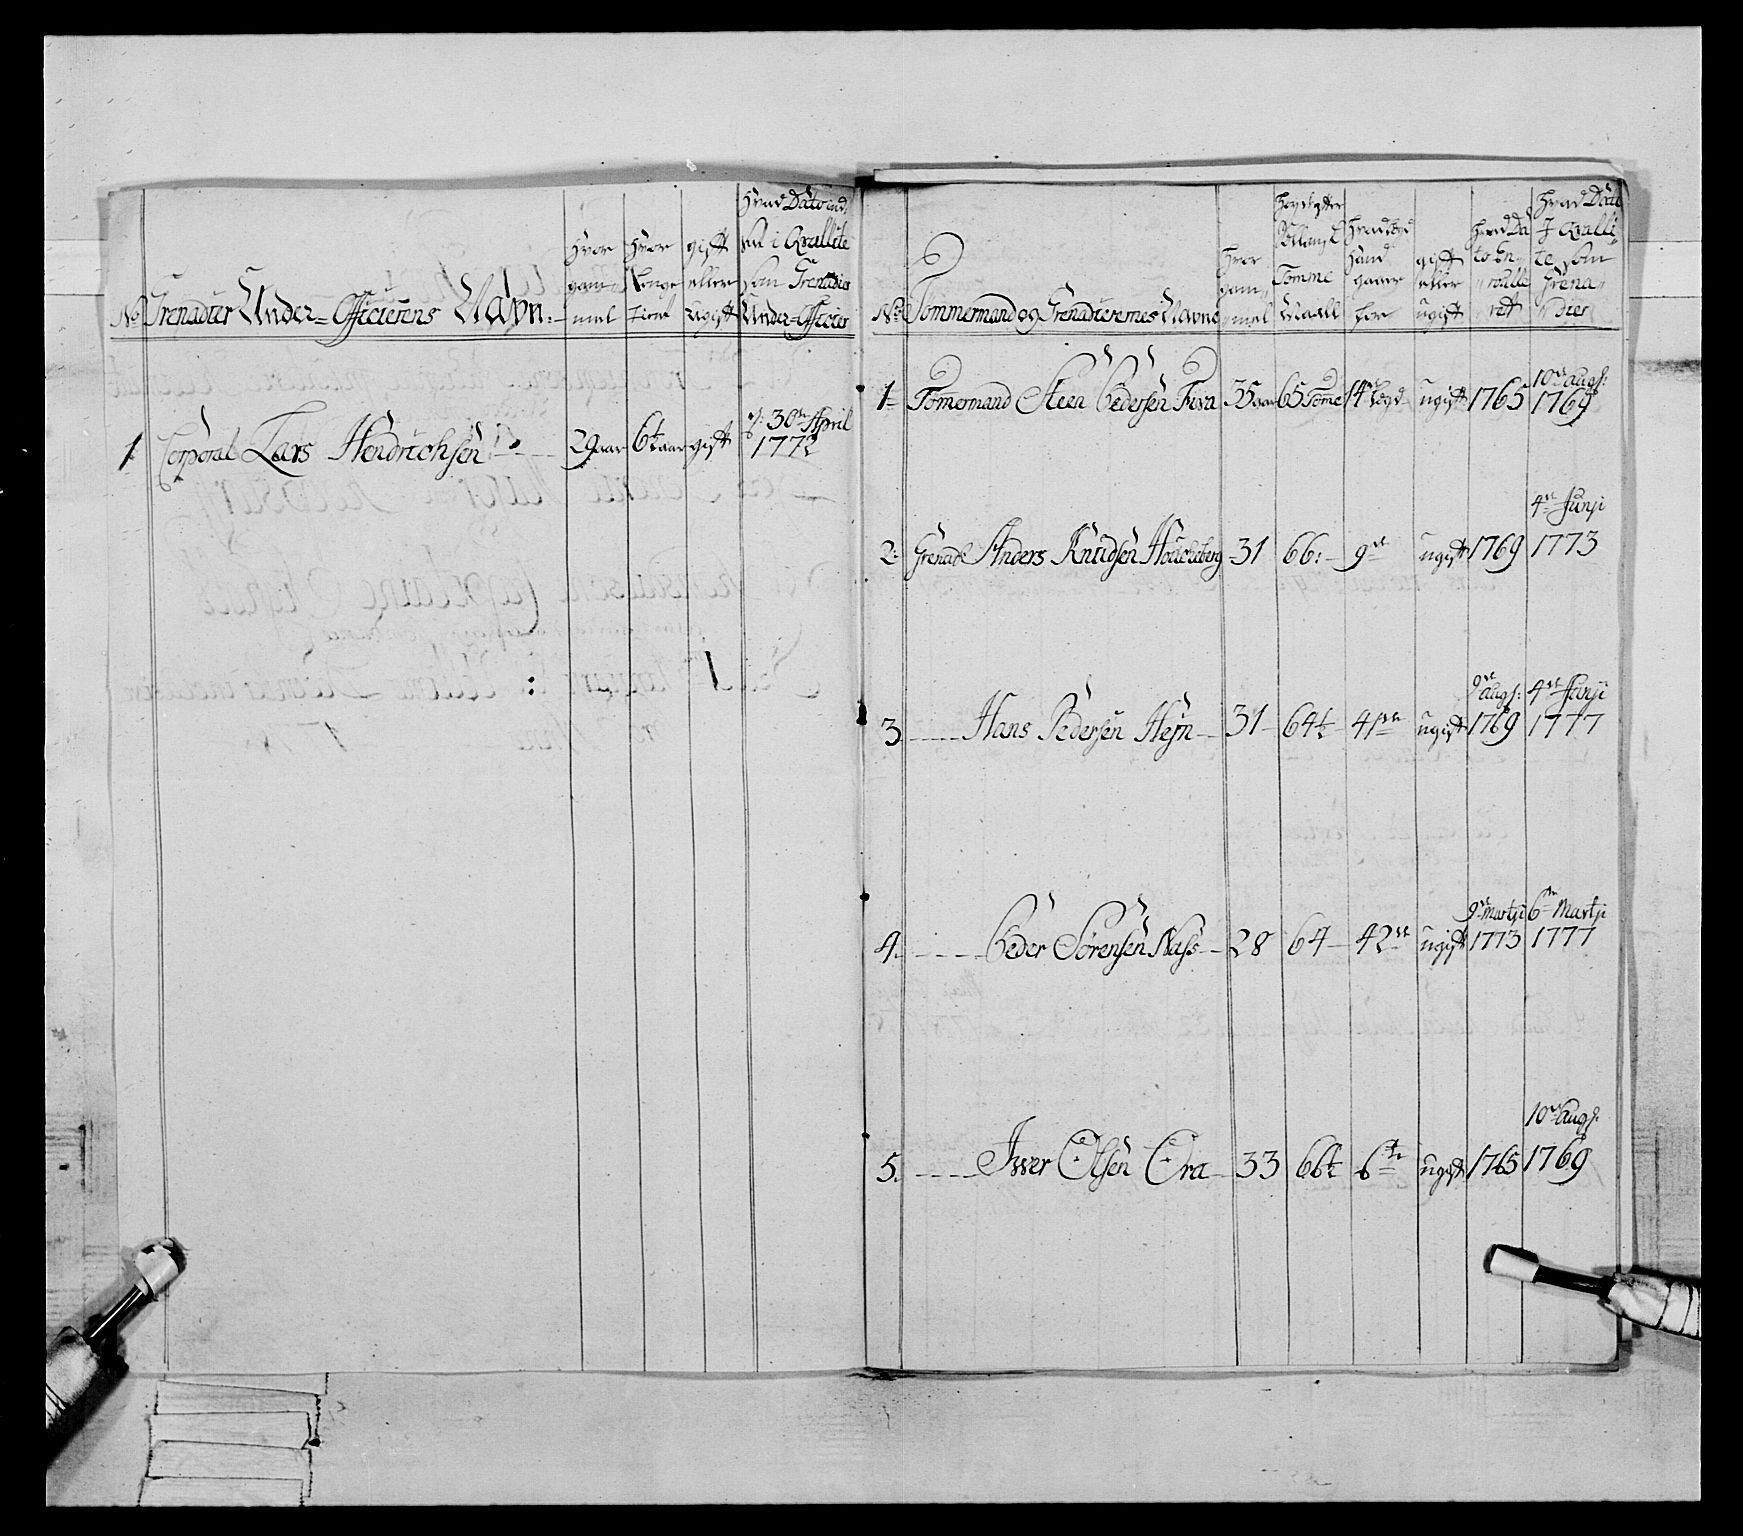 No Grenadeer Under=Officierens Navn.
Hvor gam̄ mel
Hvor Lenge tient
gift eller ugift
Hvad Dato ind, i Qvallite som Grenadier Under=Officier
1. Corporal Lars Hendrichsen
29 aar
6½ aar
gift
d: 30te April 1772
No Tømmermand og Grenadierernes Navne
Hvor gam, mel
Tomme Maall
Hvad Legd hand gaaer for
gift eller ugift
Hvad Da to En, roulle ret
Hvad Dato I Qvalli, te som Grena, dier
1. Tømermand Steen Pedersen 35 aar 65 Tome 14de Legd ugift 1765 10de augs: 1769
2. Grenad: Anders Knudsen 31 66: 9de ugift 1769 4de Junji 1773
3. Hans Pedersen Hejn 31 64½ 41de ugift 9de augs: 1769 4de Junji 1777
4. Peder Sørensen Nass 28 64 42de ugift 9de Martji 1773 6te Martji 1777
5. Iwer Olsen Ora 33 66½ 6te ugift 1765 10de augs: 1769